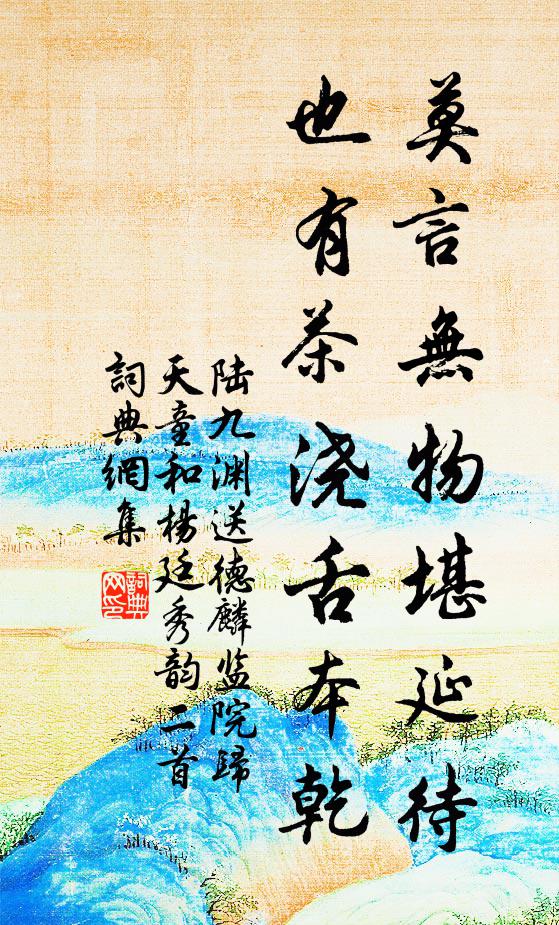 莫言無物堪延待
也有茶浇舌本乾
陆九渊送德麟监院歸
天童和楊廷秀韵二首
詞典網集
詞典网印